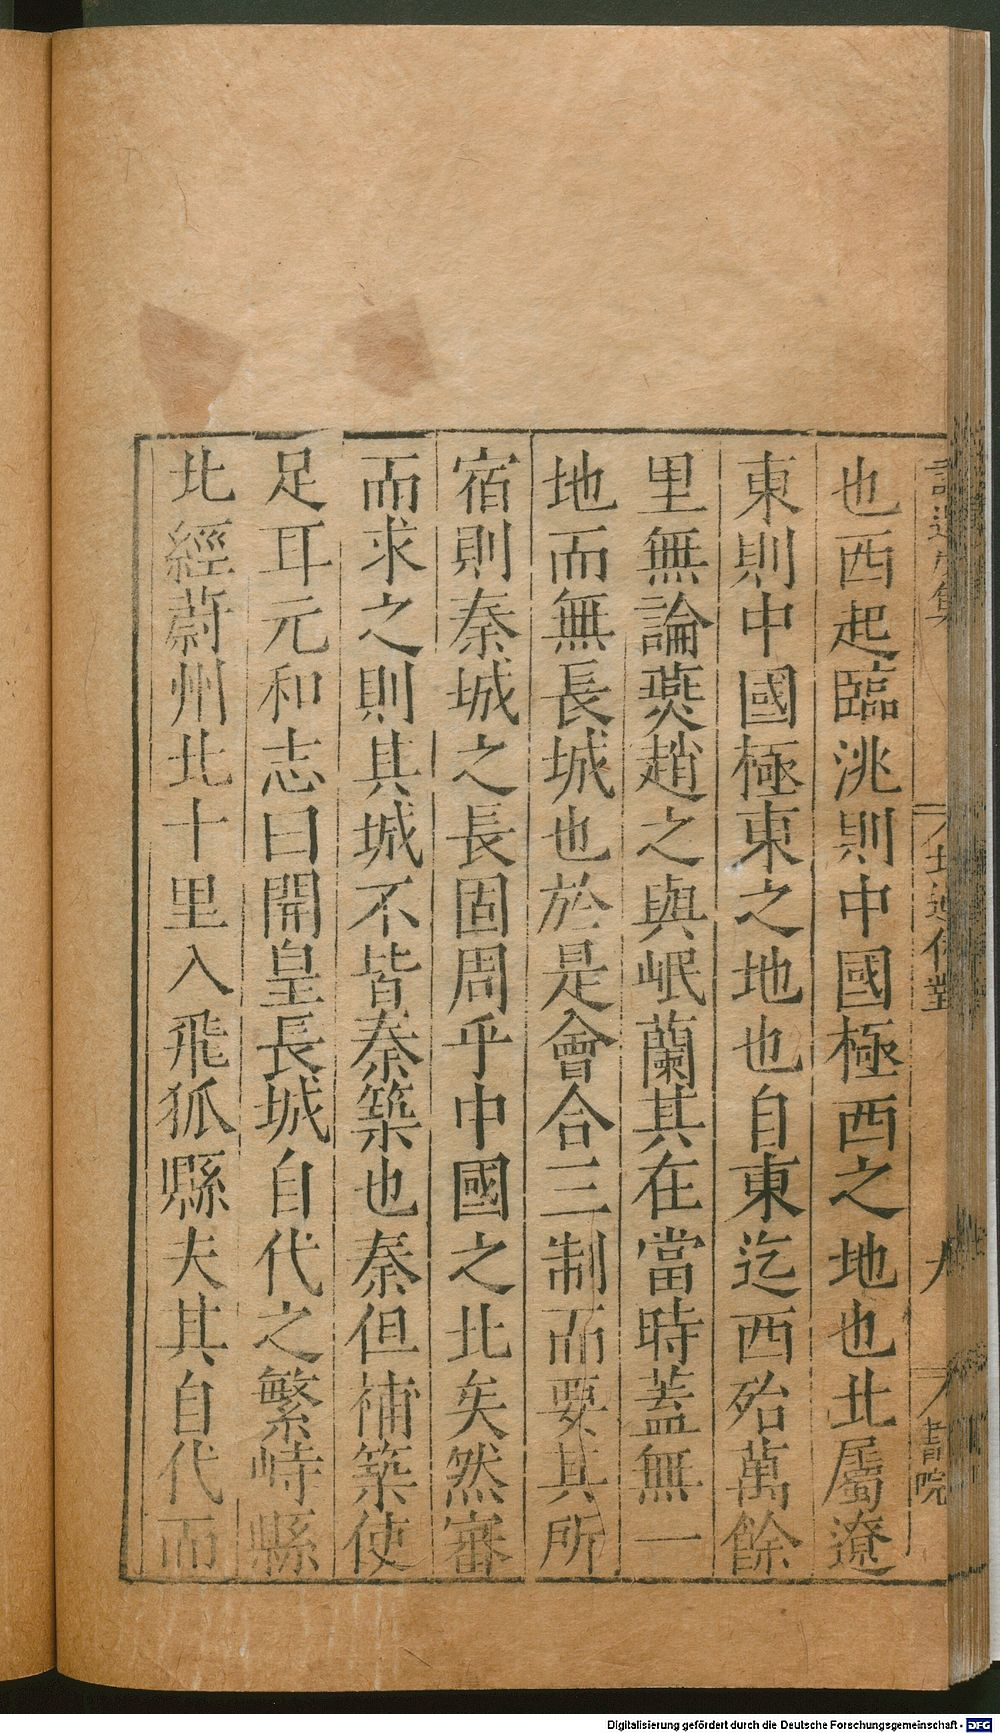 也西起臨洮則中國極西之地也北屬遼
東則中國極東之地也自東迄西殆萬餘
里無論燕趙之與岷蘭其在當時蓋無一
地而無長城也於是會合三制而要其所
宿則秦城之長固周乎中國之北矣然審
而求之則其城不皆秦築也秦但補築使
足耳元和志曰開皇長城自代之繁峙縣
北經蔚州北十里入飛狐縣夫其自代而
九
書院
Digitalisierung gefördert durch die Deutsche Forschungsgemeinschaft - DFG